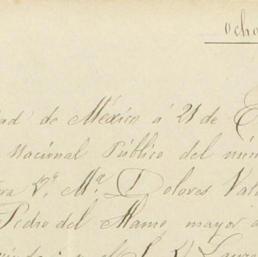 ocho
dad de México á 21 de E
Nacional Público del núm
ra D.ª M.ª Dolores Val
Pedro del Hamo, mayor d